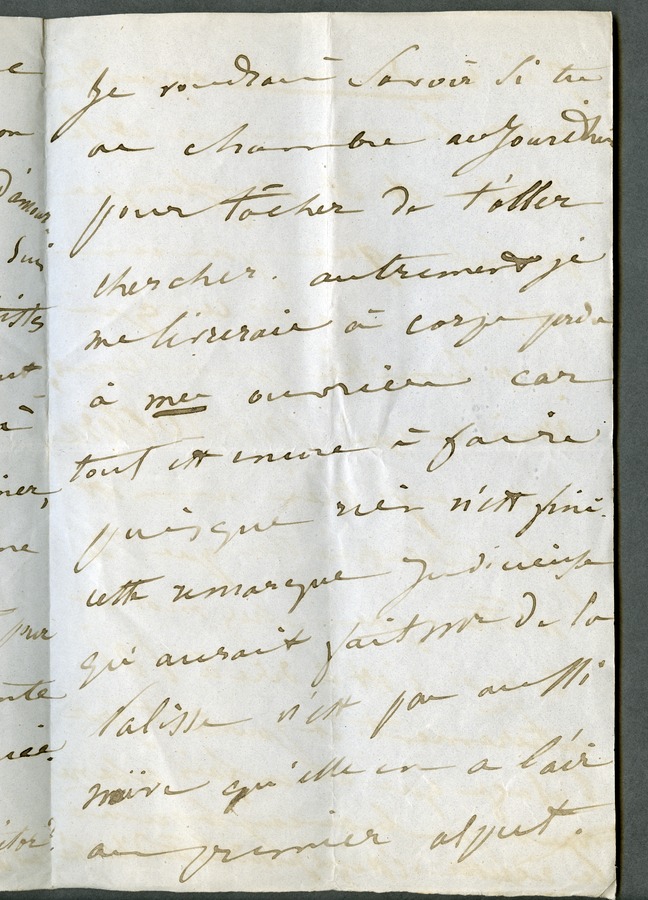 Je voudrais savoir si tu
as chambre aujourdhui
pour tâcher de t'aller
chercher. autrement je
me livrerais à corps perdu
à mes ouvriers car
tout est encore à faire
puisque rien n'est fini.
cette remarque judicieuse
qu'aurait fait Mr de la
Palisse n'est pas aussi
niaise qu'elle en a l'air
au premier aspect.